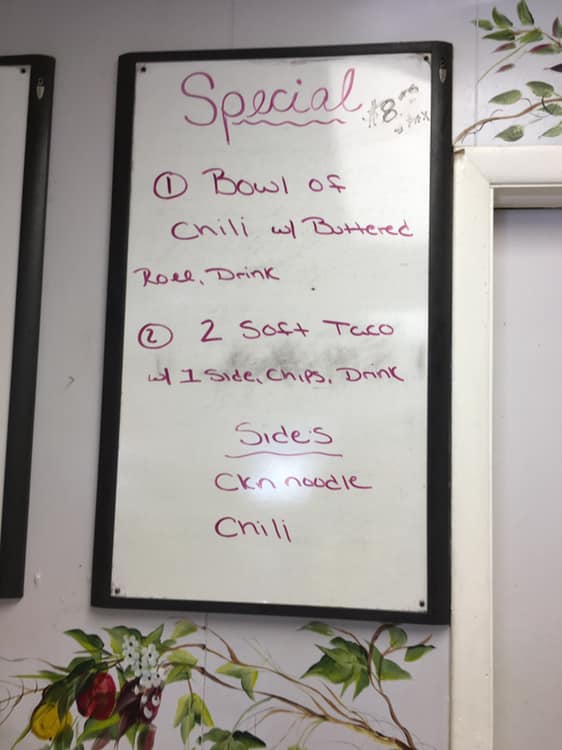 Special
$8.
① Bowl of
Chili w/ Buttered
Roll, Drink
② 2 Soft Taco
w/ 1 Side, Chips, Drink
Side's
Ckn noodle
Chili